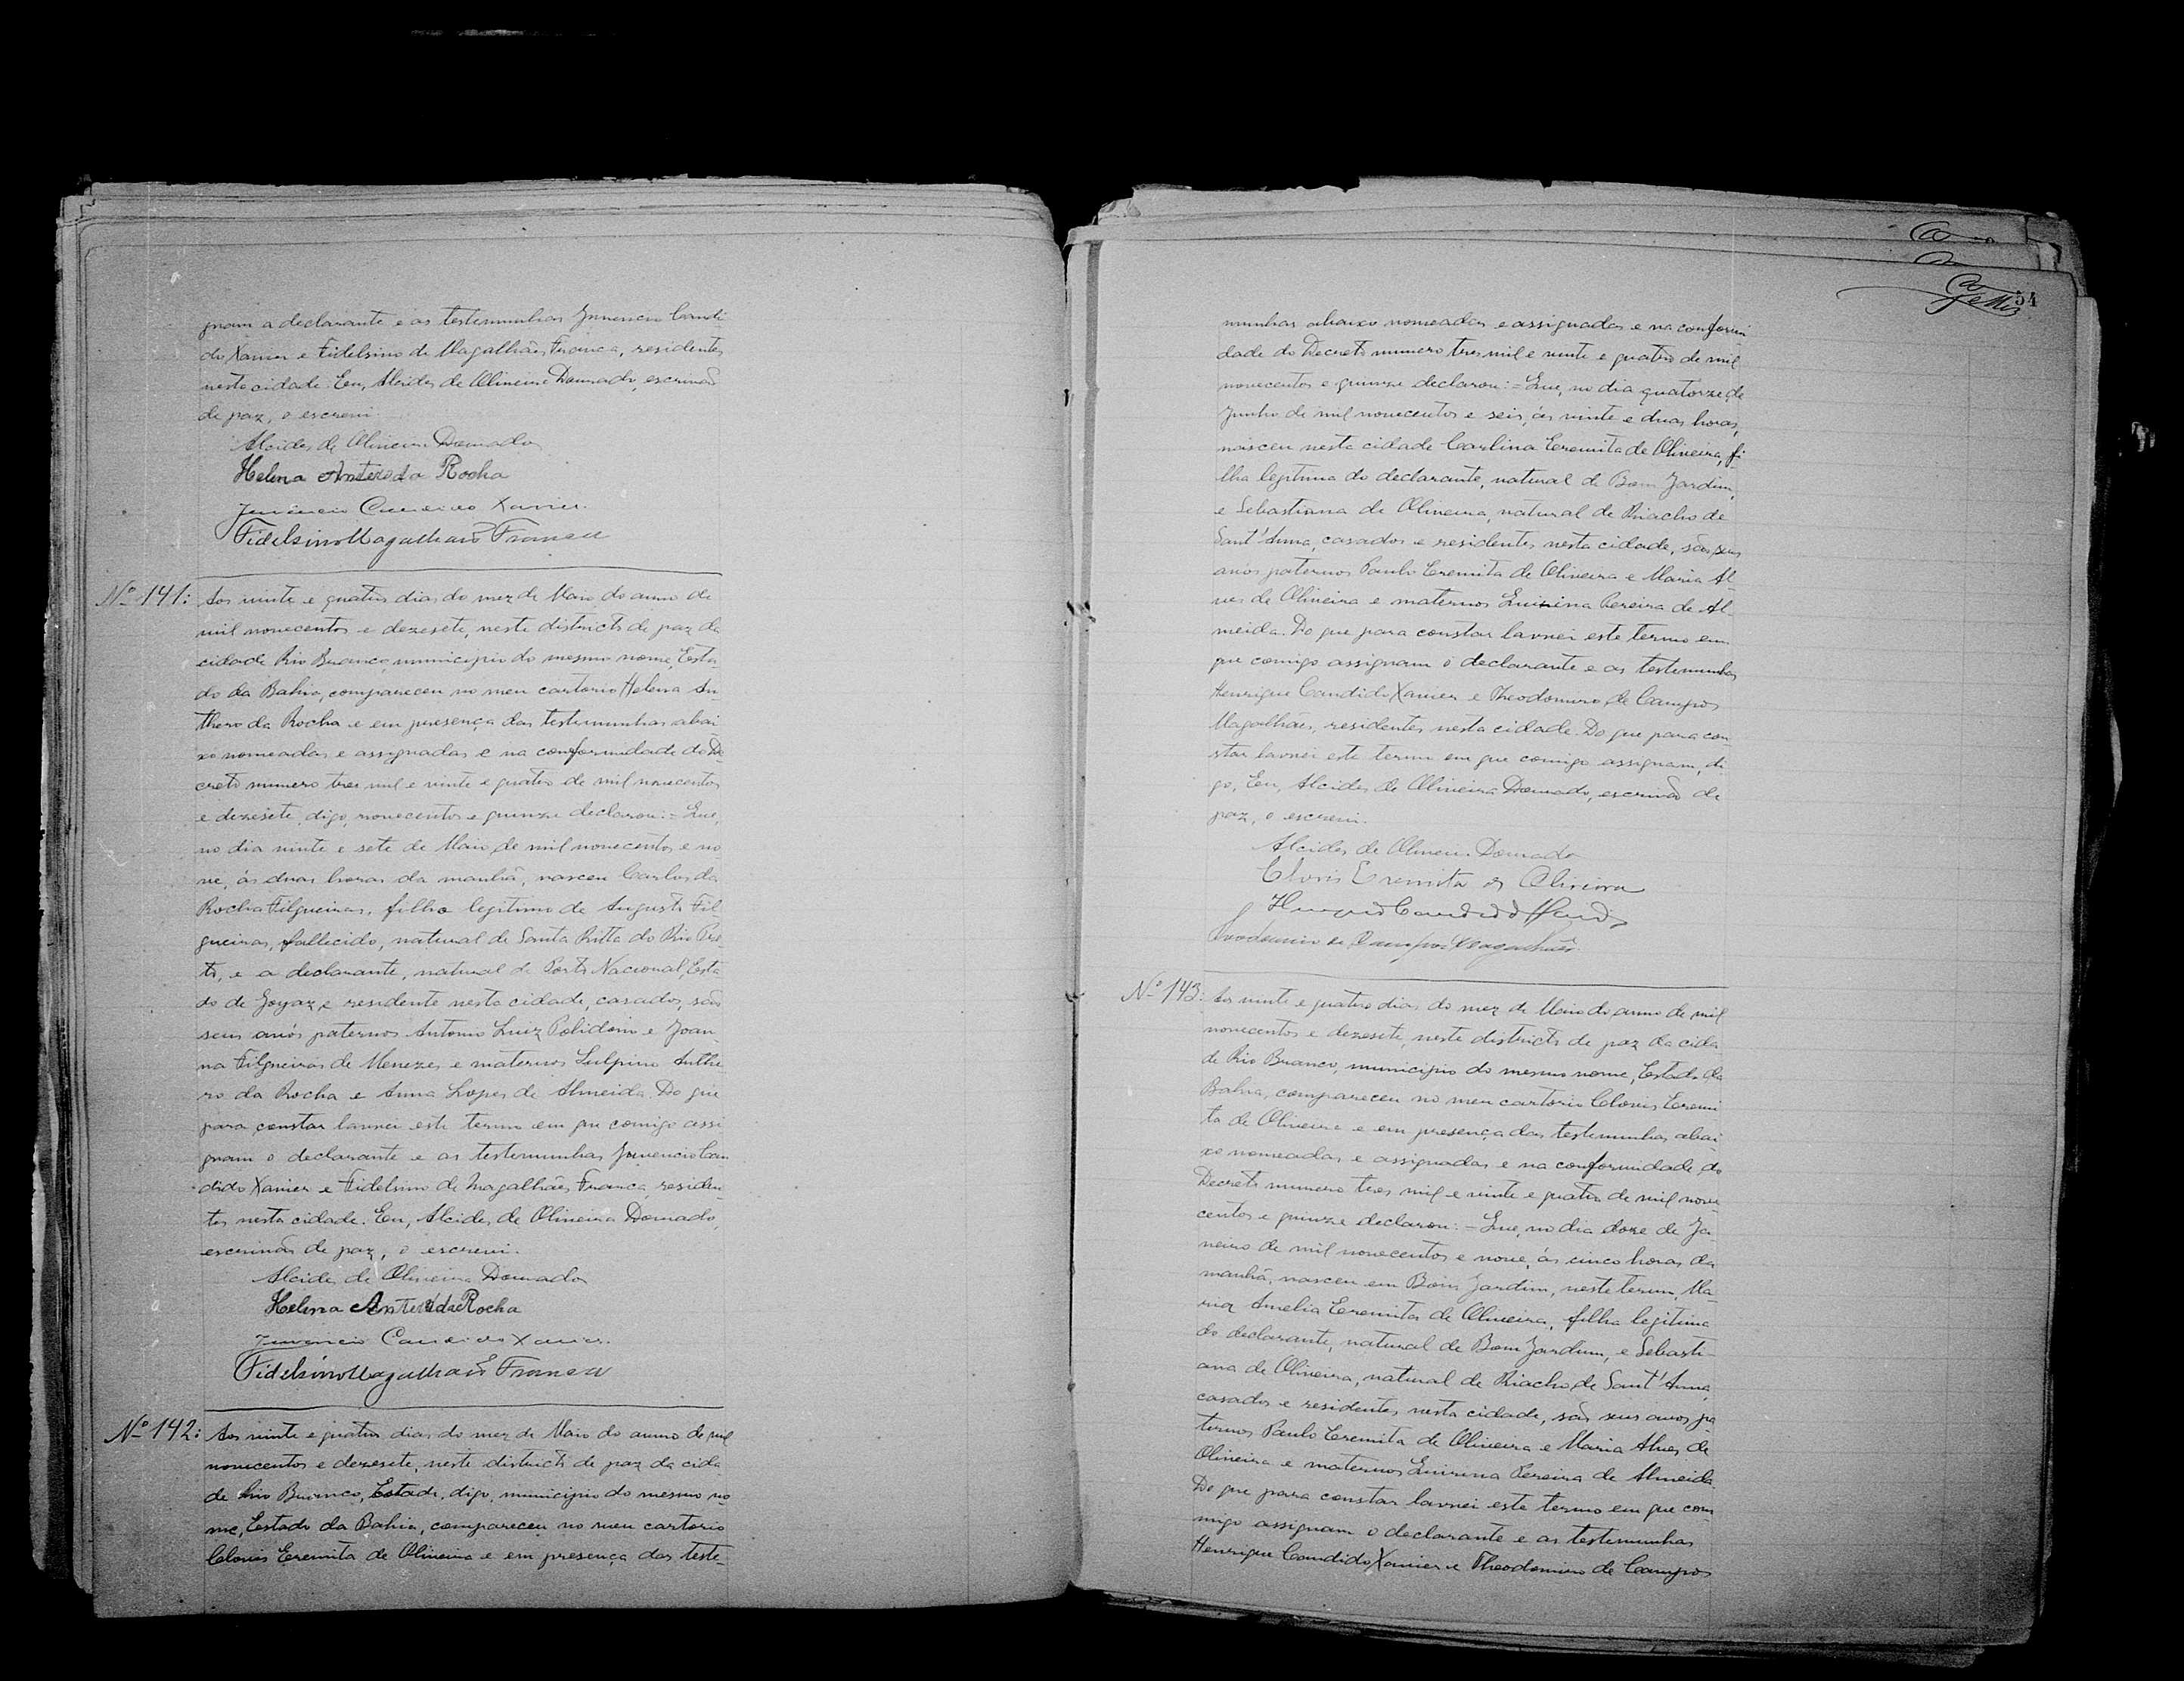 gnam a declarante e as testemunhas Juvencio Candi-
do Xavier e Fidelsino de Magalhães Franca, residentes
nesta cidade. Eu, Alcides de Oliveira Dourado, escrivão
de paz, o escrevi.
Alcides de Oliveira Dourado
Helena Antero da Rocha
Juvencio Candido Xavier.
Fidelsino Magalhães Franca
Nº 141: Aos vinte e quatro dias do mez de Maio do anno de
mil novecentos e dezesete, neste districto de paz da
cidade Rio Branco, municipio do mesmo nome, Esta-
do da Bahia, compareceu no meu cartorio Helena An-
thero da Rocha e em presença das testemunhas abai-
xo nomeadas e assignadas e na conformidade do De-
creto numero tres mil e vinte e quatro de mil novecentos
e dezesete, digo, novecentos e quinze declarou: - Que,
no dia vinte e sete de Maio de mil novecentos e no-
ve, ás duas horas da manhã, nasceu Carlos da
Rocha Filgueiras, filho legitimo de Augusto Fil-
gueiras, fallecido, natural de Santa Ritta do Rio Pre-
to, e a declarante, natural de Porto Nacional, Esta-
do de Goyaz, e residente nesta cidade, casados, são
seus avós paternos Antonio Luiz Polidorio e Joan-
na Filgueiras de Menezes e maternos Sulpino Anthe-
ro da Rocha e Anna Lopes de Almeida. Do que
para constar lavrei este termo em que comigo assi-
gnam o declarante e as testemunhas Juvencio Can-
dido Xavier e Fidelsino de Magalhães Franca, residen-
tes nesta cidade. Eu, Alcides de Oliveira Dourado,
escrivão de paz, o escrevi.
Alcides de Oliveira Dourado
Helena Antero da Rocha
Juvencio Candido Xavier.
Fidelsino Magalhães Franca
Nº 142: Aos vinte e quatro dias do mez de Maio do anno de mil
novecentos e dezesete, neste districto de paz da cida-
de Rio Branco, Estado, digo, municipio do mesmo no-
me, Estado da Bahia, compareceu no meu cartorio
Clovis Eremita de Oliveira e em presença das teste-
54
munhas abaixo nomeadas e assignadas e na conformi-
dade do Decreto numero tres mil e vinte e quatro de mil
novecentos e quinze declarou: - Que, no dia quatorze de
Junho de mil novecentos e seis, ás vinte e duas horas,
nasceu nesta cidade Carlina Eremita de Oliveira, fi-
lha legitima do declarante, natural de Bom Jardim,
e Sebastiana de Oliveira, natural de Riacho de
Sant'Anna, casados e residentes nesta cidade, são seus
avós paternos Paulo Eremita de Oliveira e Maria Al-
ves de Oliveira e maternos Pereira de Al-
meida. Do que para constar lavrei este termo em
que comigo assignam o declarante e as testemunhas
Henrique Candido Xavier e Theodomiro de Campos
Magalhães, residentes nesta cidade. Do que para con-
star lavrei este termo em que comigo assignam, di-
go, Eu, Alcides de Oliveira Dourado, escrivão de
paz, o escrevi.
Alcides de Oliveira Dourado
Clovis Eremita de Oliveira
Henrique Candido Xavier
Theodomiro de Campos Magalhães.
Nº 143: Aos vinte e quatro dias do mez de Maio do anno de mil
novecentos e dezesete, neste districto de paz da cida-
de Rio Branco, municipio do mesmo nome, Estado da
Bahia, compareceu no meu cartorio Clovis Eremi-
ta de Oliveira e em presença das testemunhas abai-
xo nomeadas e assignadas e na conformidade do
Decreto numero tres mil e vinte e quatro de mil nove-
centos e quinze declarou: - Que, no dia doze de Ja-
neiro de mil novecentos e nove, ás cinco horas da
manhã, nasceu em Bom Jardim, neste termo, Ma-
ria Amelia Eremita de Oliveira, filha legitima
do declarante, natural de Bom Jardim, e Sebasti-
ana de Oliveira, natural de Riacho de Sant'Anna,
casados e residentes nesta cidade, são seus avós pa-
ternos Paulo Eremita de Oliveira e Maria Alves de
Oliveira e maternos Pereira de Almeida.
Do que para constar lavrei este termo em que com-
migo assignam o declarante e as testemunhas
Henrique Candido Xavier e Theodomiro de Campos